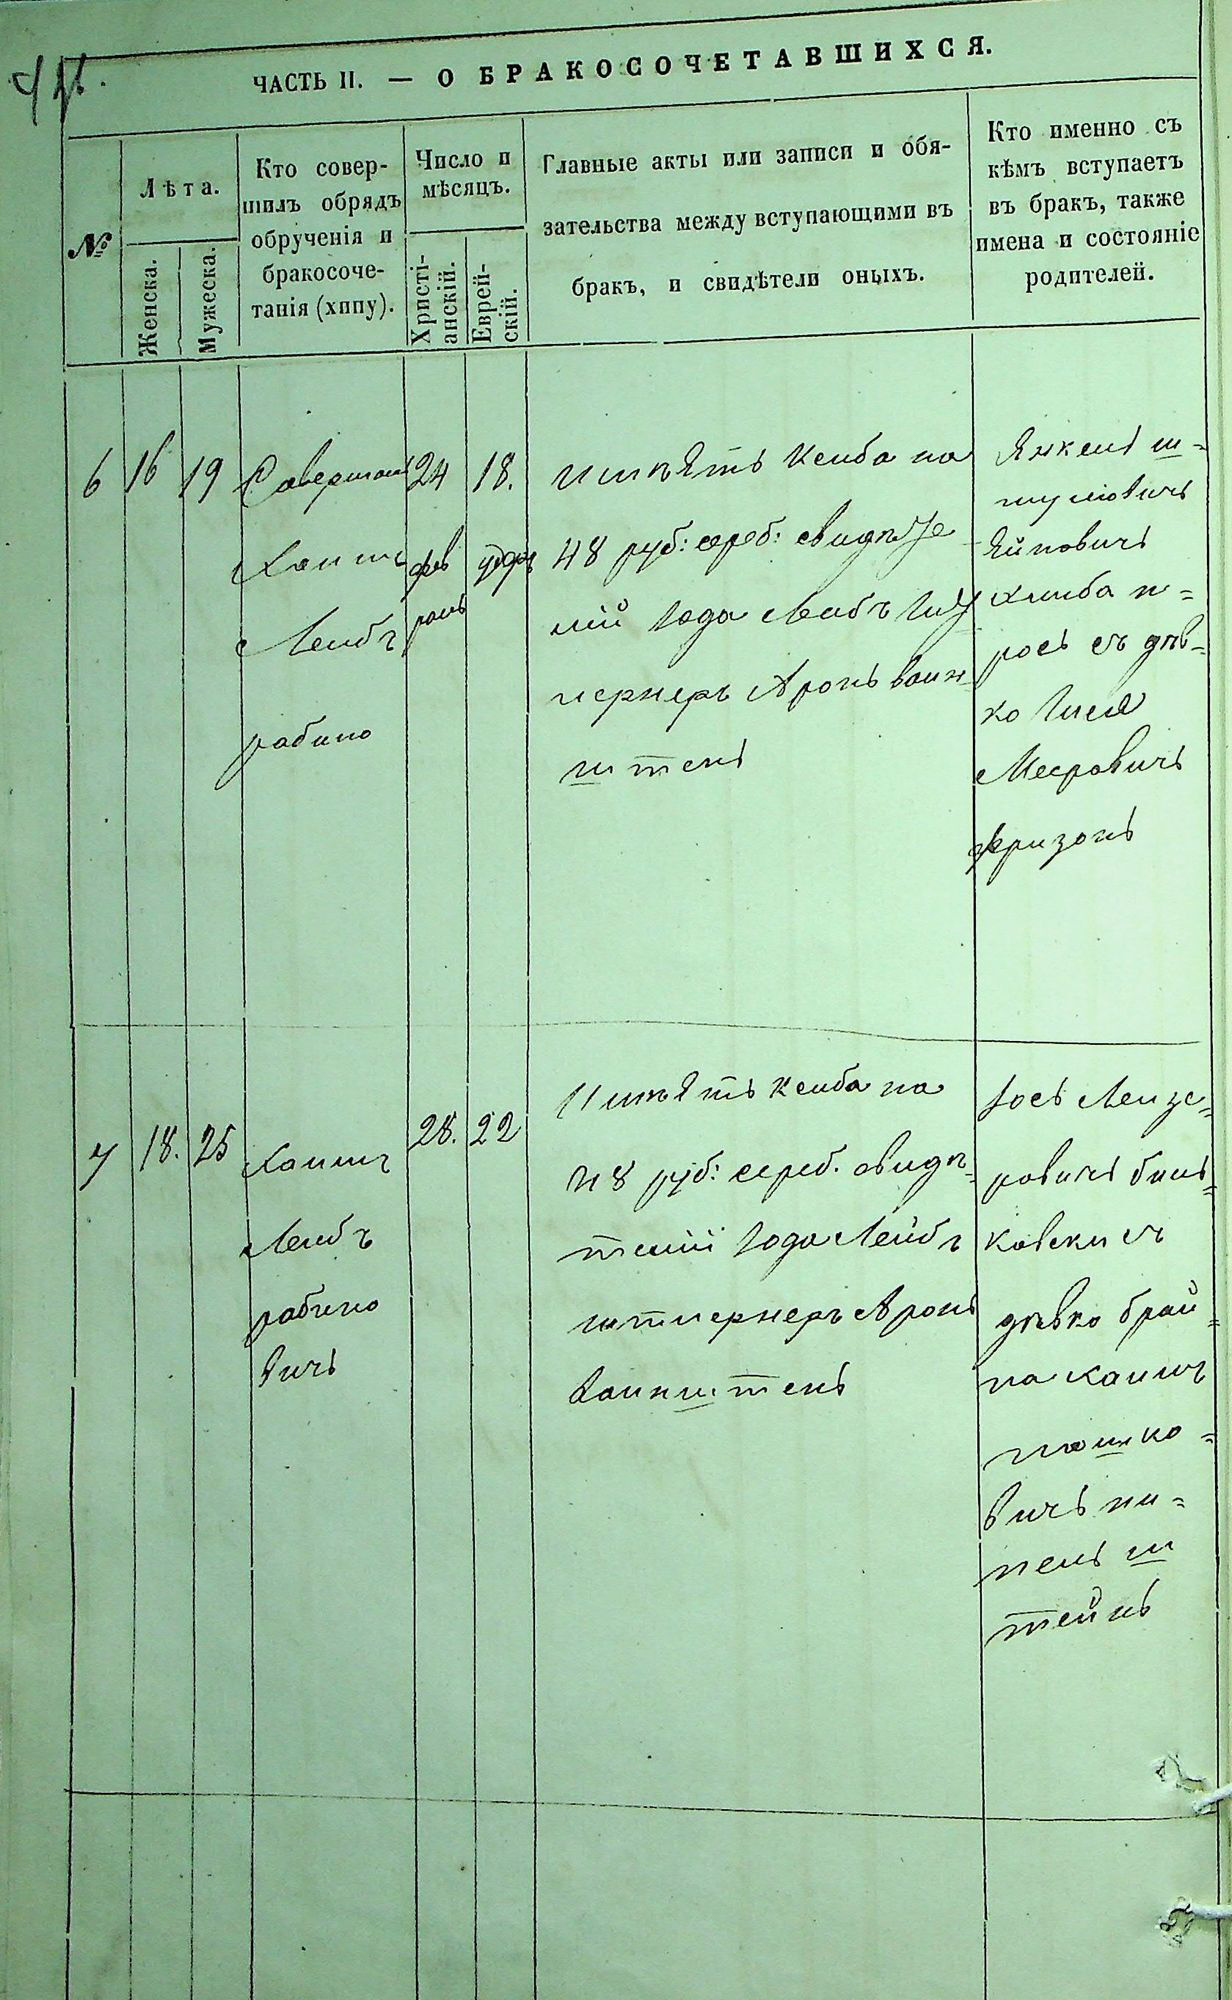 ЧАСТЬ II. — О БРАКОСОЧЕТАВШИХСЯ.
№
Лѣта.
Женска.
Мужеска.
Кто совер-
шилъ обрядъ
обрученія и
бракосоче-
танія (хипу).
Число и
мѣсяцъ.
Христі-
анскій.
Еврей-
скій.
Главные акты или записи и обя-
зательства между вступающими въ
бракъ, и свидѣтели оныхъ.
Кто именно съ
кѣмъ вступаетъ
въ бракъ, также
имена и состояніе
родителей.
6
16
19
Хаимъ
Лейбъ
рабино
24
фев
раль
18.
ксиба на
48 руб: сереб:
лій Іода Лейбъ
Аронъ ваин
штенъ
Янкель ш-
муловичъ
рось съ дѣв-
ко
Мееровичъ
7
18.
25
Хаимъ
Лейбъ
рабино
вичъ
28.
22
ксиба на
48 руб: сереб. свидѣ=
телій Іода Лейбъ
штернеръ Аронъ
ваинштенъ
Іось Лейзе=
ровичъ биль=
ковски съ
дѣвко брай=
на хаимъ
мошко=
вичъ
штейнъ